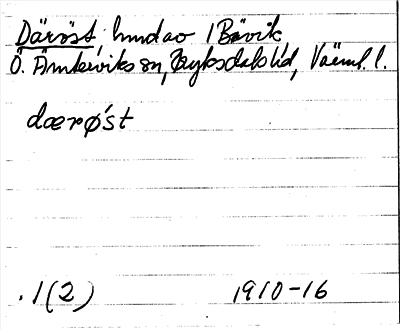 Däröst, hmdar / Bävik
Ö. Ämterviks sn, Fryksdals hd, Värml. l.
dærøst
. 1(2) 1910-16